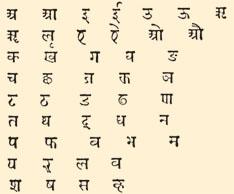 अ आ इ ई उ ऊ ऋ
ॠ ऌ ए ऐ ओ औ
क ख ग घ ङ
च छ ज झ ञ
ट ठ ड ढ ण
त थ द ध न
प फ ब भ म
य र ल व
श ष स ह